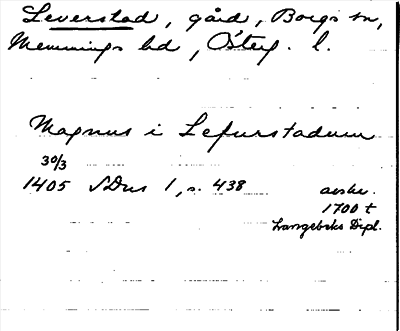 Leverstad, gård, Borgs sn,
Memmings hd, Österg. l.
Magnus i Lefurstadum
30/3
1405 SDns 1, s. 438 avskr.
1700 t
Langebeks Dipl.